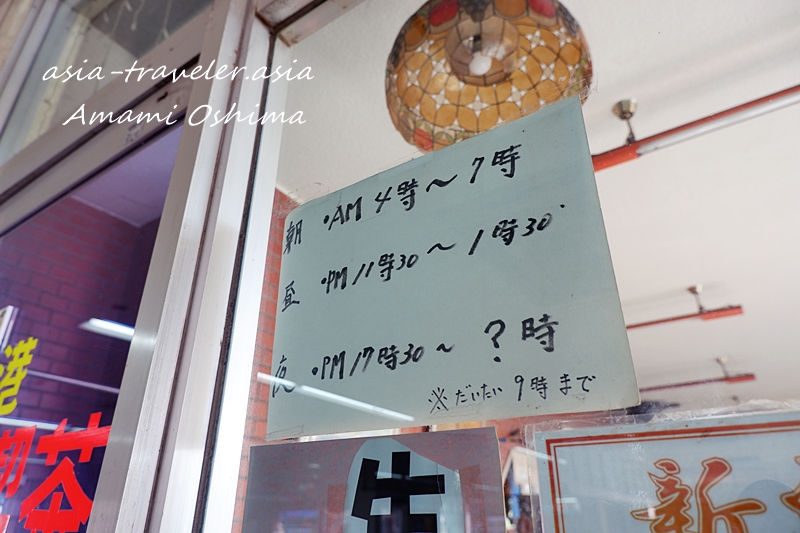 asia-traveler.asia
Amami Oshima
朝 ・AM 4時～7時
昼 ・PM 11時30～1時30
夜 ・PM 17時30～ ?時
※だいたい 9時まで
港
新